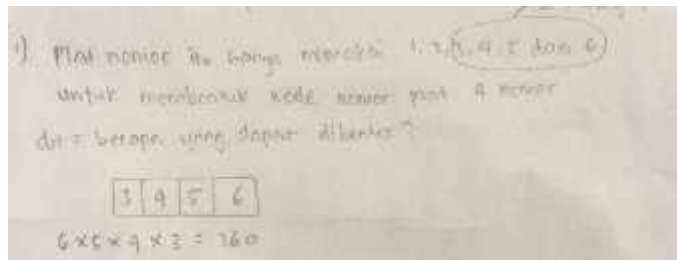 1) Plat nomor itu hanya memakai 1, 2, 3, 4, 5 dan 6
untuk membentuk kode nomor plat 4 nomor
dit = berapa yang dapat dibentuk ?
3 4 5 6
6 x 5 x 4 x 3 = 360